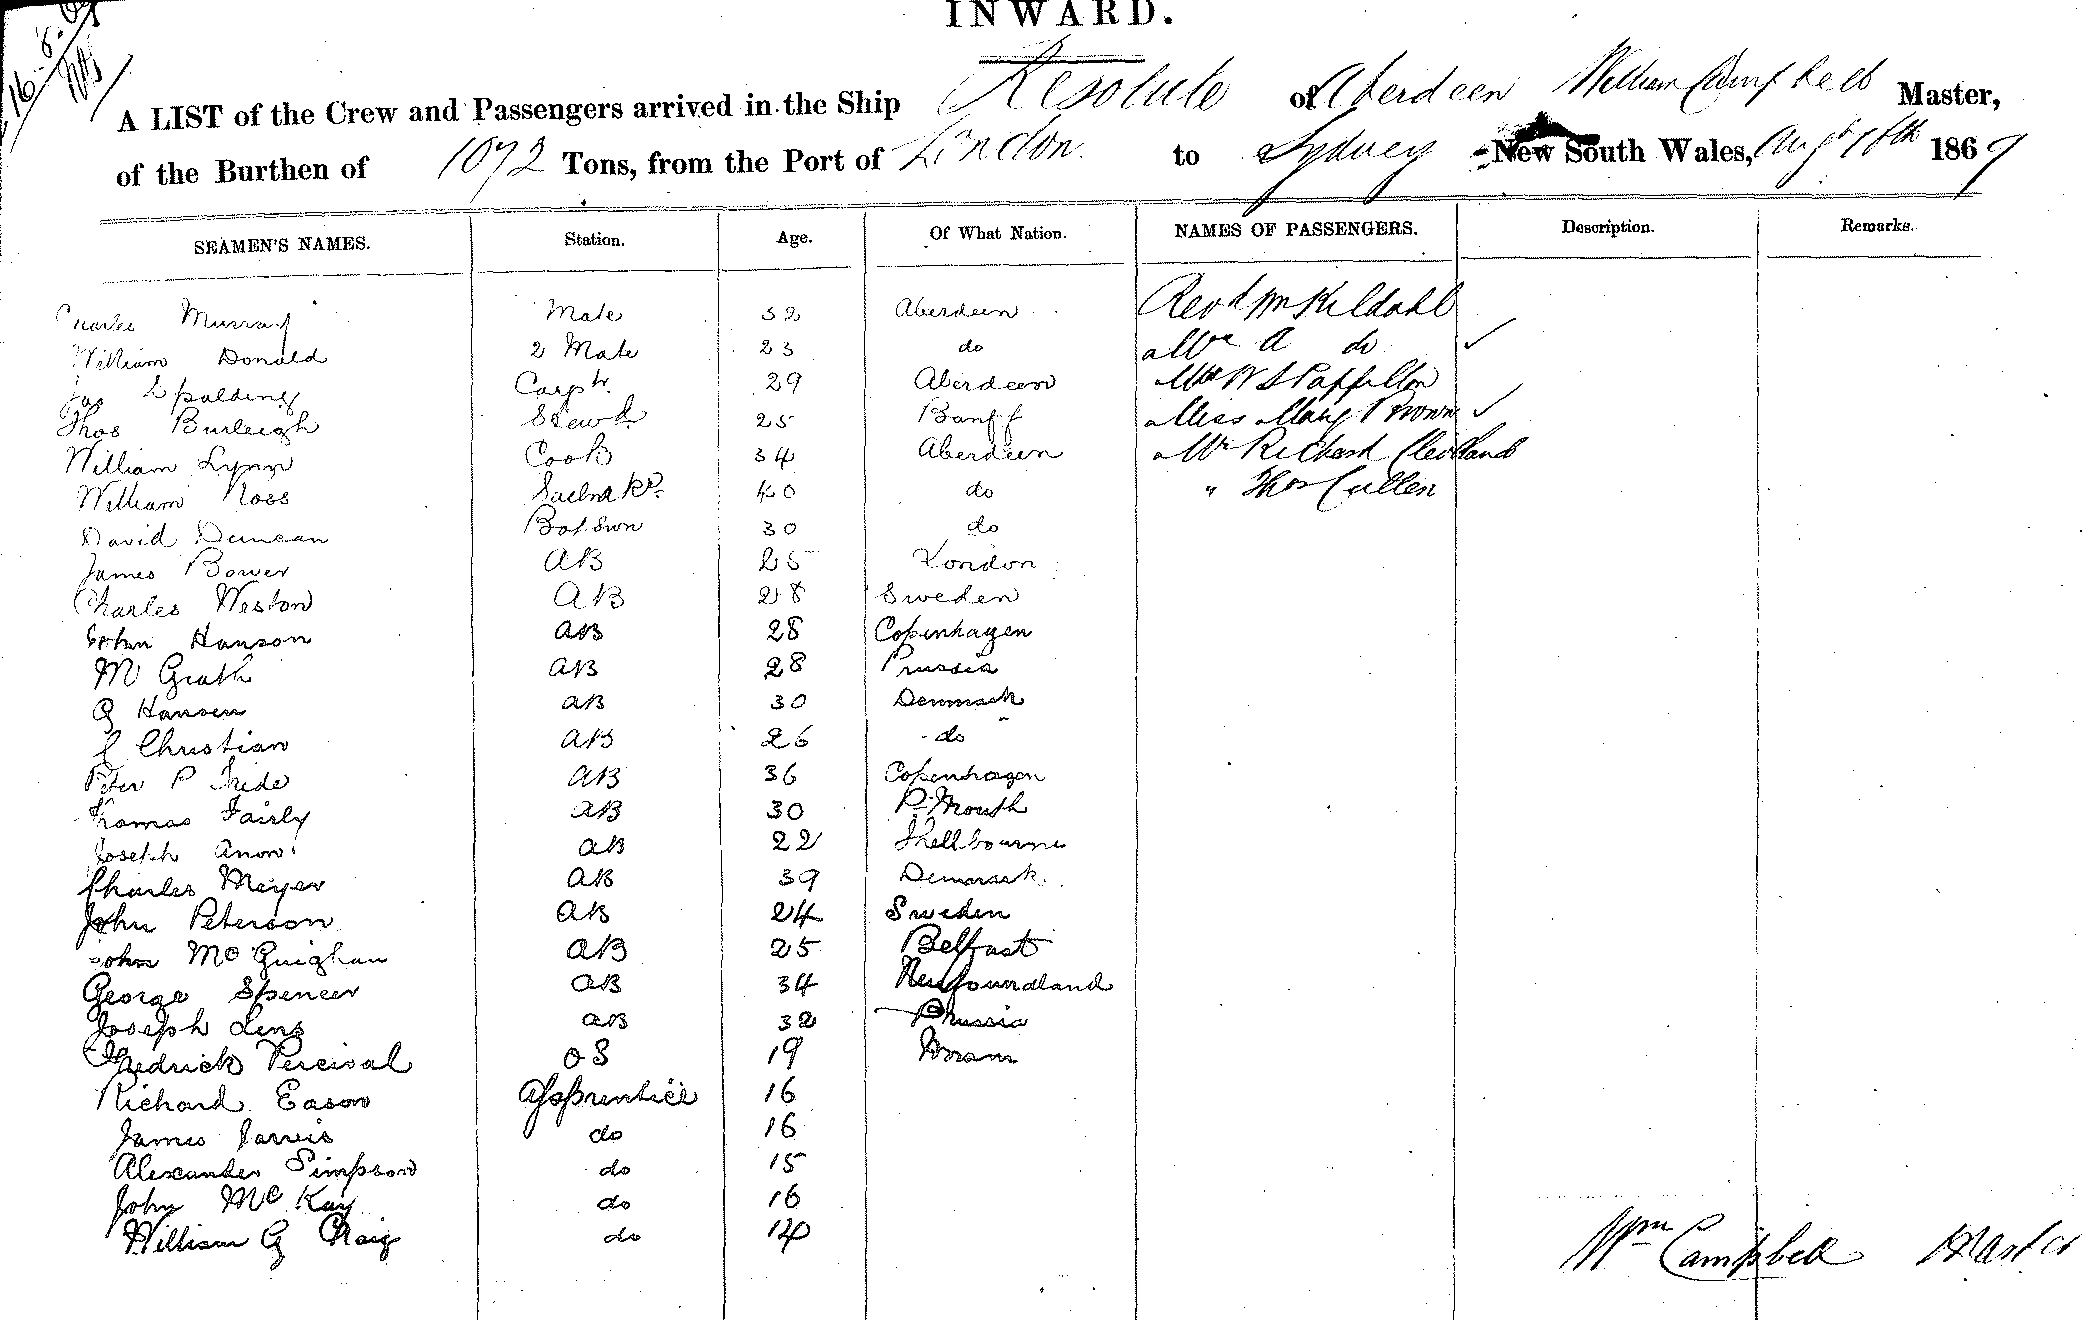 INWARD.
A LIST of the Crew and Passengers arrived in the Ship Resolute of Aberdeen William Campbell Master,
of the Burthen of 1072 Tons, from the Port of London to Sydney New South Wales, Augt 16th 1869
SEAMEN'S NAMES. Station. Age. Of What Nation. NAMES OF PASSENGERS. Description. Remarks.
Charles Murray Mate 32 Aberdeen Revd Wm Kildahl
William Donald 2 Mate 23 do Mrs A do ✓
Jas Spalding Carptr. 29 Aberdeen W S
Thos Burleigh Stewd. 25 Banff Miss Mary Brown ✓
William Lynn Cook 34 Aberdeen Mr Richard Cleveland
William Ross Sailmkr. 40 do " Thos Cullen
David Duncan Botswn 30 do
James Bower AB 25 London
Charles Weston AB 28 Sweden
John Hanson AB 28 Copenhagen
M Grath AB 28 Prussia
G Hansen AB 30 Denmark
Christian AB 26 do
Peter P Thede AB 36 Copenhagen
Thomas Fairly AB 30 P. Mouth
Joseph Anon AB 22 Shellbourne
Charles Meyer AB 39 Denmark
John Peterson AB 24 Sweden
John McGuighan AB 25 Belfast
George Spencer AB 34 Newfoundland
Joseph Lens AB 32 Prussia
Fredrick Percival OS 19
Richard Eason Apprentice 16
James Jarvis do 16
Alexander Simpson do 15
John McKay do 16
William G Craig do 14
Wm Campbell Master